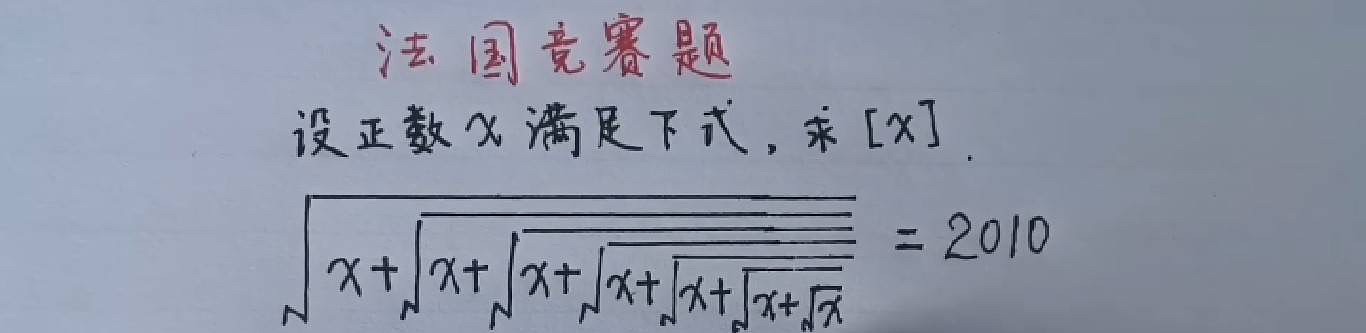 法国竞赛题
设正数x满足下式,求[x].
√(x+√(x+√(x+√(x+√(x+√(x+√x)))))) = 2010